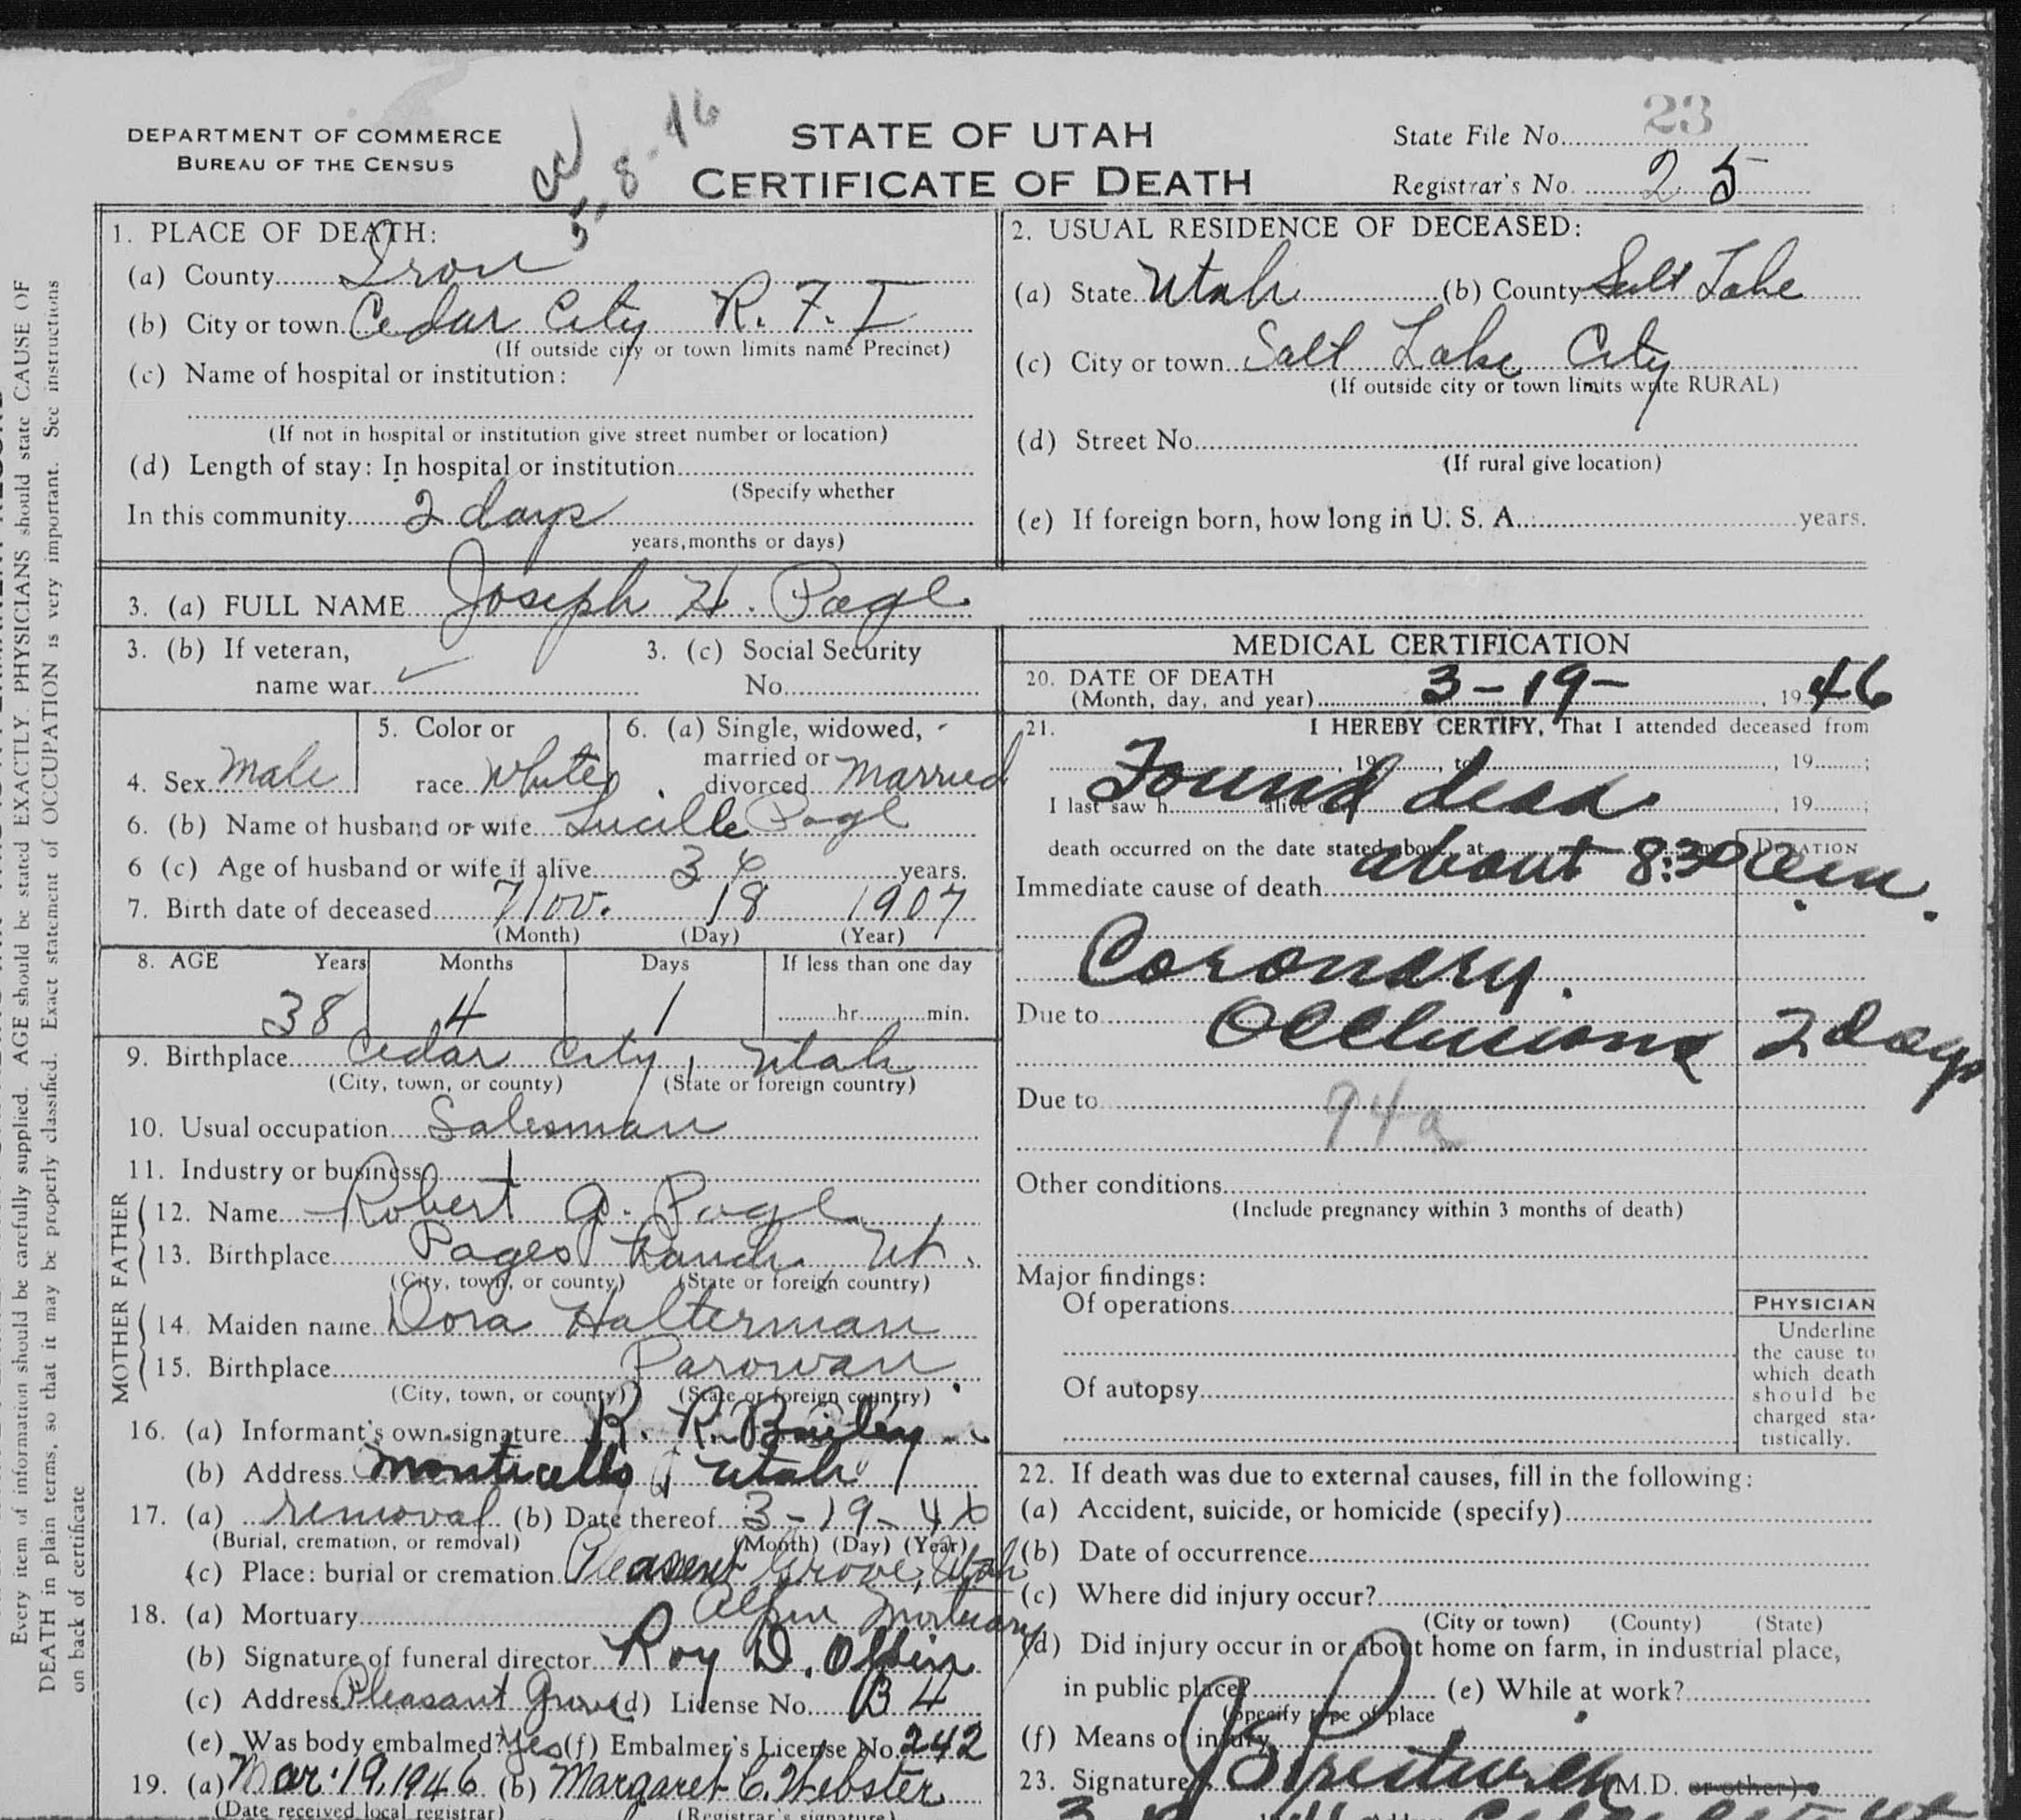 DEPARTMENT OF COMMERCE
BUREAU OF THE CENSUS
5-8-46
STATE OF UTAH
CERTIFICATE OF DEATH
State File No. 23
Registrar's No. 25
1. PLACE OF DEATH:
(a) County Iron
(b) City or town Cedar City R. F. I
(If outside city or town limits name Precinct)
(c) Name of hospital or institution:
(If not in hospital or institution give street number or location)
(d) Length of stay: In hospital or institution
(Specify whether
In this community 2 days
years, months or days)
2. USUAL RESIDENCE OF DECEASED:
(a) State Utah (b) County Salt Lake
(c) City or town Salt Lake City
(If outside city or town limits write RURAL)
(d) Street No.
(If rural give location)
(e) If foreign born, how long in U. S. A. years.
3. (a) FULL NAME Joseph H. Page
3. (b) If veteran, name war
3. (c) Social Security No.
4. Sex Male
5. Color or race White
6. (a) Single, widowed, married or divorced Married
6. (b) Name of husband or wife Lucille Page
6 (c) Age of husband or wife if alive 36 years.
7. Birth date of deceased Nov. 18 1907
(Month) (Day) (Year)
8. AGE Years Months Days If less than one day
38 4 1 hr. min.
9. Birthplace Cedar City, Utah
(City, town, or county) (State or foreign country)
10. Usual occupation Salesman
11. Industry or business
FATHER
12. Name Robert G. Page
13. Birthplace Pages Ranch Ut.
(City, town, or county) (State or foreign country)
MOTHER
14. Maiden name Dora Halterman
15. Birthplace Parowan
(City, town, or county) (State or foreign country)
16. (a) Informant's own signature R. R. Bailey
(b) Address Monticello, Utah
17. (a) removal (b) Date thereof 3-19-46
(Burial, cremation, or removal) (Month) (Day) (Year)
(c) Place: burial or cremation Pleasant Grove, Utah
18. (a) Mortuary Olpin Mortuary
(b) Signature of funeral director Roy D. Olpin
(c) Address Pleasant Grove (d) License No. B 4
(e) Was body embalmed? Yes (f) Embalmer's License No. 242
19. (a) Mar. 19, 1946 (b) Margaret C. Webster
(Date received local registrar) (Registrar's signature)
MEDICAL CERTIFICATION
20. DATE OF DEATH
(Month, day, and year) 3-19- , 1946
21. I HEREBY CERTIFY, That I attended deceased from
, 19 , to , 19 ;
Found dead
I last saw h alive on , 19 ;
death occurred on the date stated above, at m. DURATION
about 8:30 a.m.
Immediate cause of death
Coronary
Due to Occlusion 2 days
Due to
94a
Other conditions
(Include pregnancy within 3 months of death)
Major findings:
Of operations
Of autopsy
PHYSICIAN
Underline
the cause to
which death
should be
charged sta-
tistically.
22. If death was due to external causes, fill in the following:
(a) Accident, suicide, or homicide (specify)
(b) Date of occurrence
(c) Where did injury occur?
(City or town) (County) (State)
(d) Did injury occur in or about home on farm, in industrial place,
in public place? (e) While at work?
(Specify type of place
(f) Means of injury
23. Signature Prestwich M.D. or other)
Every item of information should be carefully supplied. AGE should be stated EXACTLY. PHYSICIANS should state CAUSE OF
DEATH in plain terms, so that it may be properly classified. Exact statement of OCCUPATION is very important. See instructions
on back of certificate